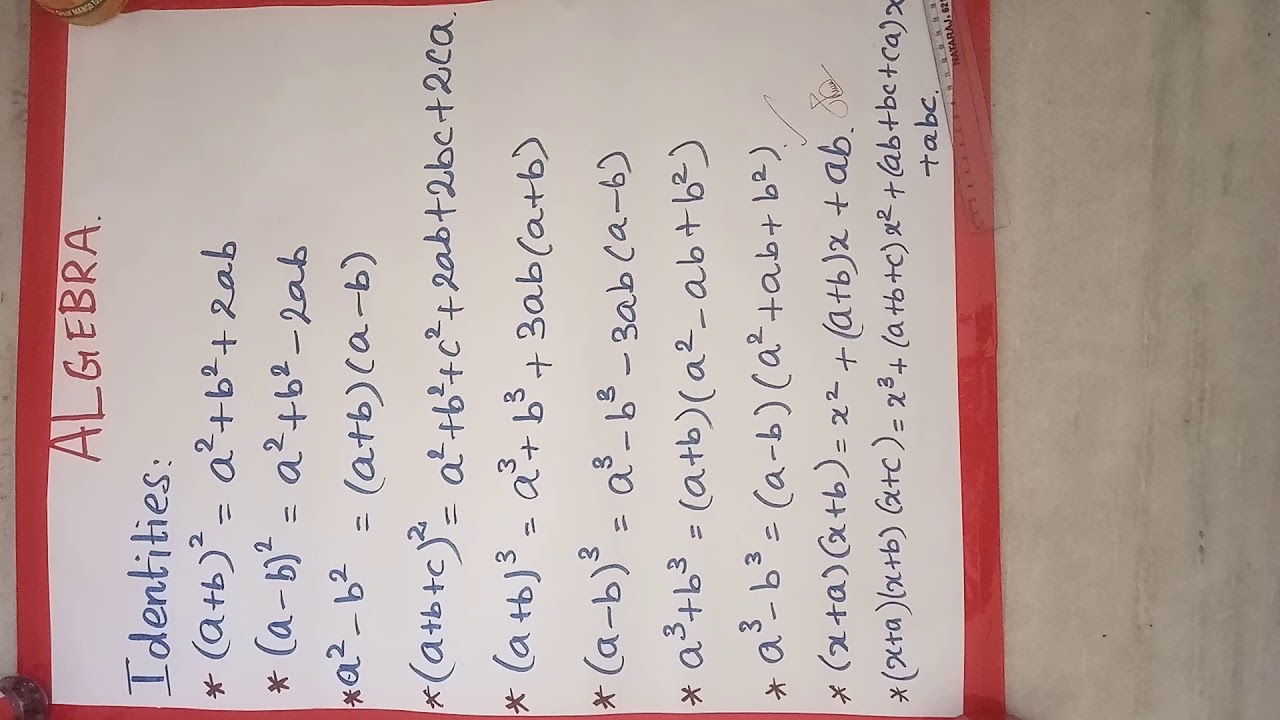 ALGEBRA.
Identities:
* (a+b)² = a²+b²+2ab
* (a-b)² = a²+b²-2ab
* a²-b² = (a+b)(a-b)
* (a+b+c)² = a²+b²+c²+2ab+2bc+2ca.
* (a+b)³ = a³+b³+3ab(a+b)
* (a-b)³ = a³-b³-3ab(a-b)
* a³+b³ = (a+b)(a²-ab+b²)
* a³-b³ = (a-b)(a²+ab+b²).
* (x+a)(x+b) = x²+(a+b)x+ab.
* (x+a)(x+b)(x+c) = x³+(a+b+c)x²+(ab+bc+ca)x
+abc.
NATARAJ. 621